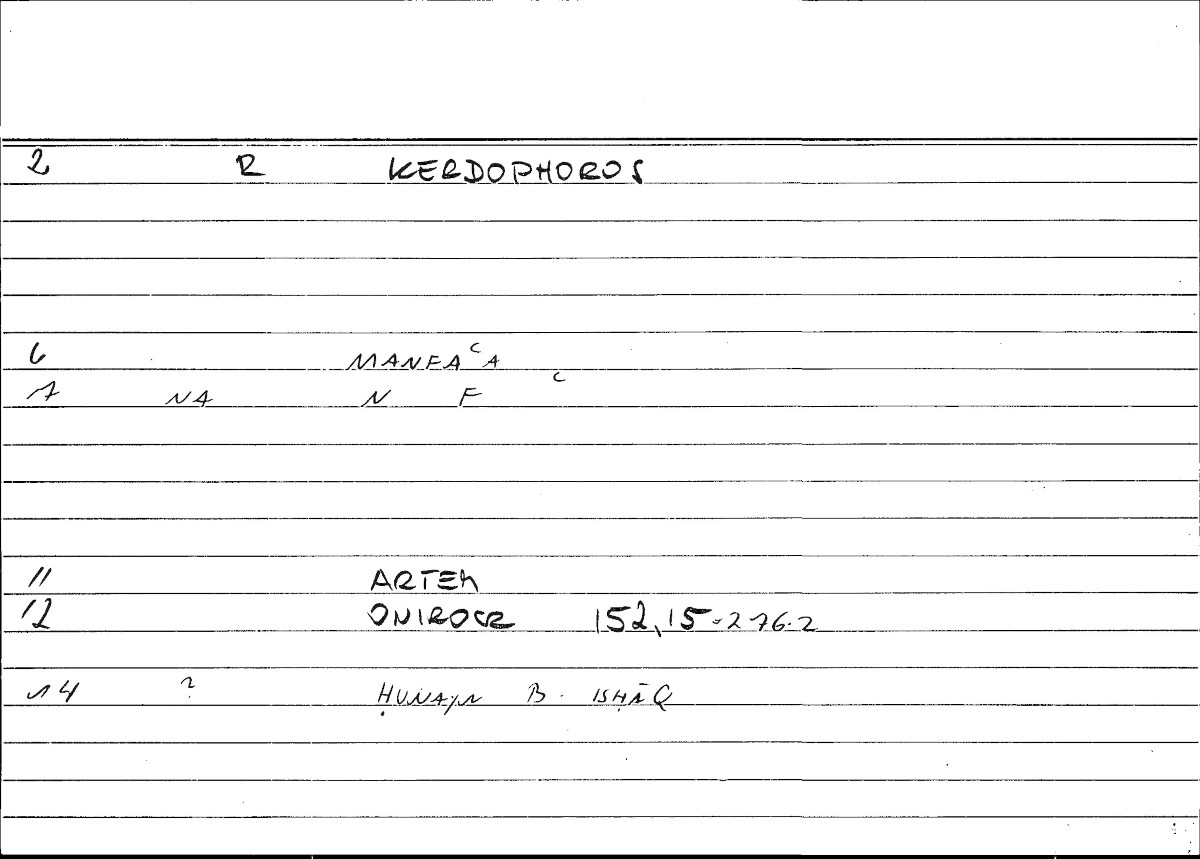 2 R KERDOPHOROS
6 MANFAᶜA
7 NA N F ᶜ
11 ARTEM
12 ONIROCR 152,15-276.2
14 ? ḤUNAYN B. ISḤĀQ